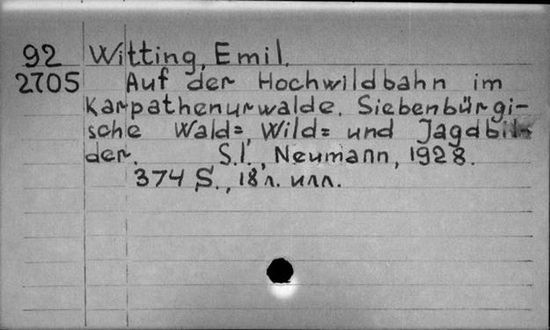 92 Witting, Emil.
2705 Auf der Hochwildbahn im
Karpathenurwalde. Siebenbürgi-
sche Wald=, Wild= und Jagdbil-
der. S.l., Neumann, 1928.
374 S., 18 л. илл.